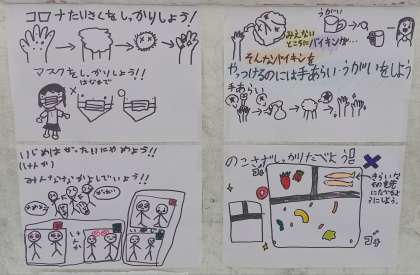 コロナたいさくをしっかりしよう!
マスクをしっかりしよう!!
はなまで
いじめはぜったいにやめよう!!
(けんか)
みんななかよしでいよう!!
けんか
うがい
みえない
ところにバイキンが…
そんなバイキンを
やっつけるのには手あらい・うがいをしよう
手あらい
のこさずしっかりたべよう
きらいな